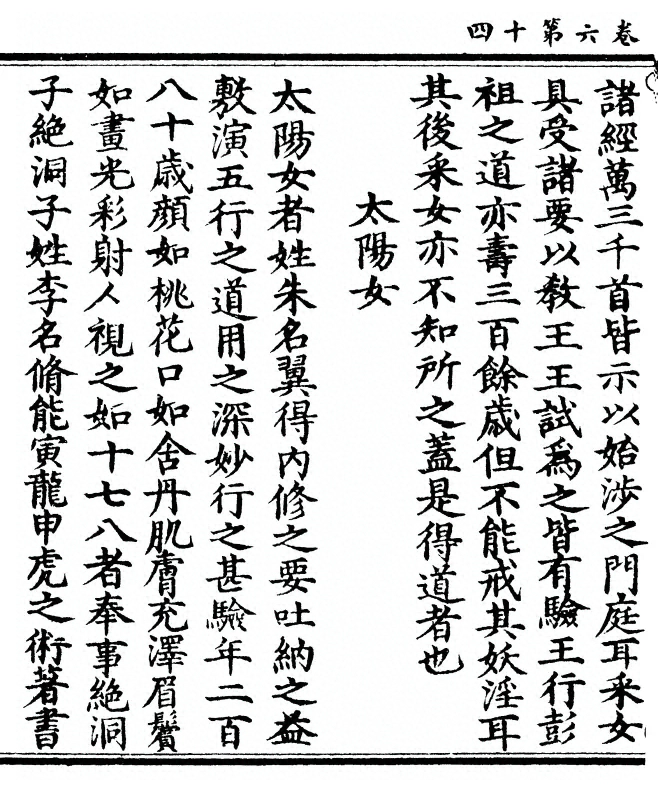 卷六第十四
諸經萬三千首皆示以始涉之門庭耳采女
具受諸要以敎王王試爲之皆有驗王行彭
祖之道亦壽三百餘歲但不能戒其妖淫耳
其後采女亦不知所之蓋是得道者也
太陽女
太陽女者姓朱名翼得內修之要吐納之益
敷演五行之道用之深妙行之甚驗年二百
八十歲顏如桃花口如含丹肌膚充澤眉鬢
如畫光彩射人視之如十七八者奉事絶洞
子絶洞子姓李名脩能寅龍申虎之術著書